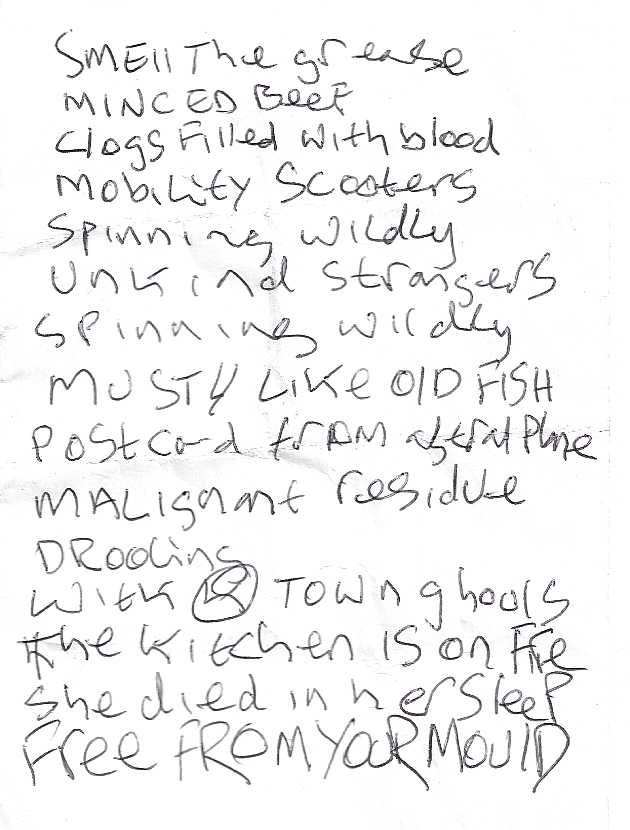 SMEll The grease
MINCED BeeF
Clogs Filled with blood
Mobility Scooters
Spinning wildly
Unkind Strangers
Spinning wildly
MUSTY LIKE OlD FISH
POStcard frOM astral Plane
MALignant residue
DRooling
with TOWN ghouls
The kitchen IS on Fire
She died in her Sleep
Free FROM YOUR MOUlD